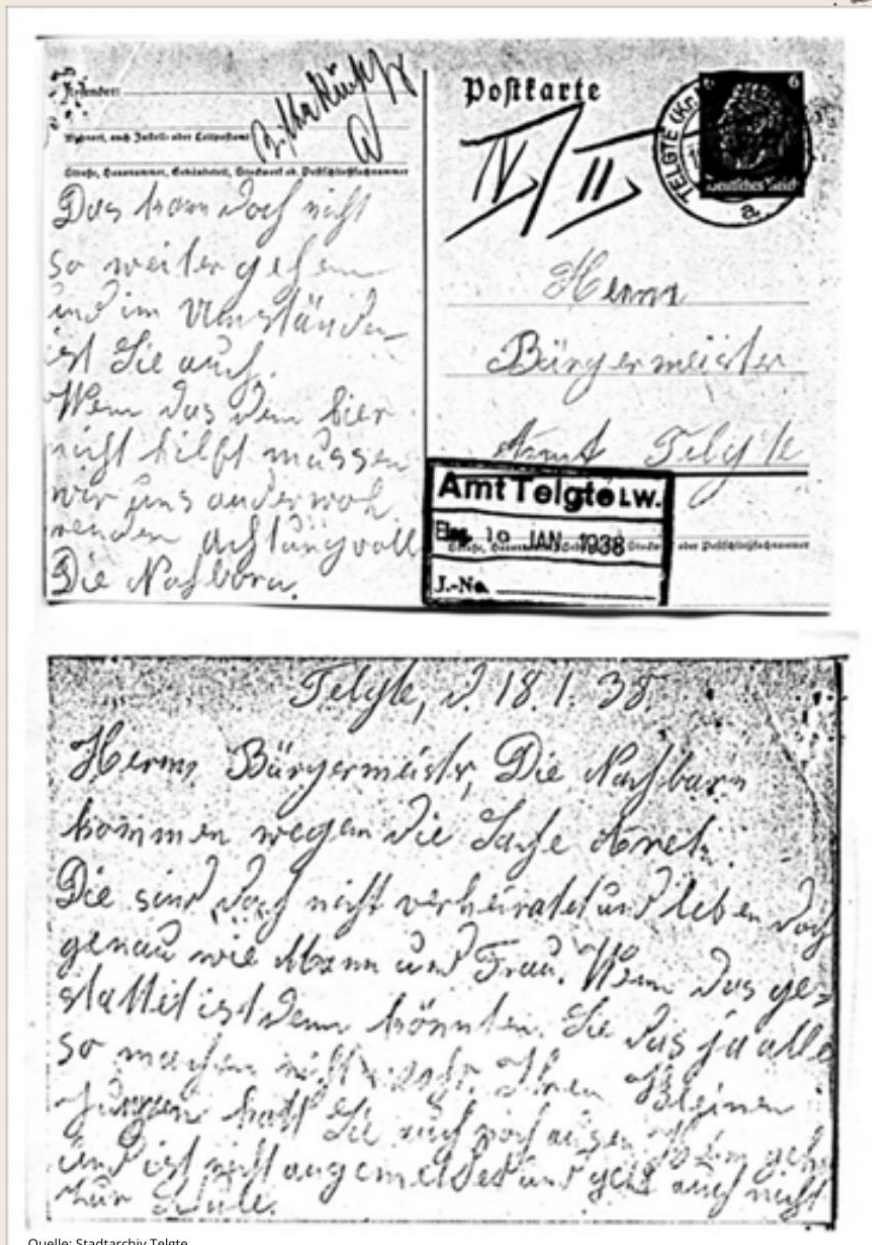 Absender:
Wohnort, auch Zustell- oder Leitpostamt
Straße, Hausnummer, Gebäudeteil, Stockwerk od. Postschließfachnummer
Das kann doch nicht
so weiter gehen
und im Umständen
ist Sie auch.
Wenn das den hier
nicht hilft müssen
wir uns anders
wenden Achtungvoll
Die Nachbarn.
Postkarte
IV/II
TELGTE
6
6
Deutsches Reich
a
Herrn
Bürgermeister
Amt Telgte
Amt Telgte LW.
Eing. 19 JAN. 1938
Straße, Hausnummer, oder Postschließfachnummer
J.-No.
Telgte, d. 18.1.38.
Herrn Bürgermeister, Die Nachbarn
kommen wegen die Sache
Die sind doch nicht verheiratet und leben doch
genau wie Mann und Frau. Wenn das ge-
stattet ist denn könnten Sie das ja alle
so machen nicht wahr. Ihren kleinen
Jungen hatt Sie auch noch
und ist nicht angemeldet und geht auch nicht
zur Schule.
Quelle: Stadtarchiv Telgte